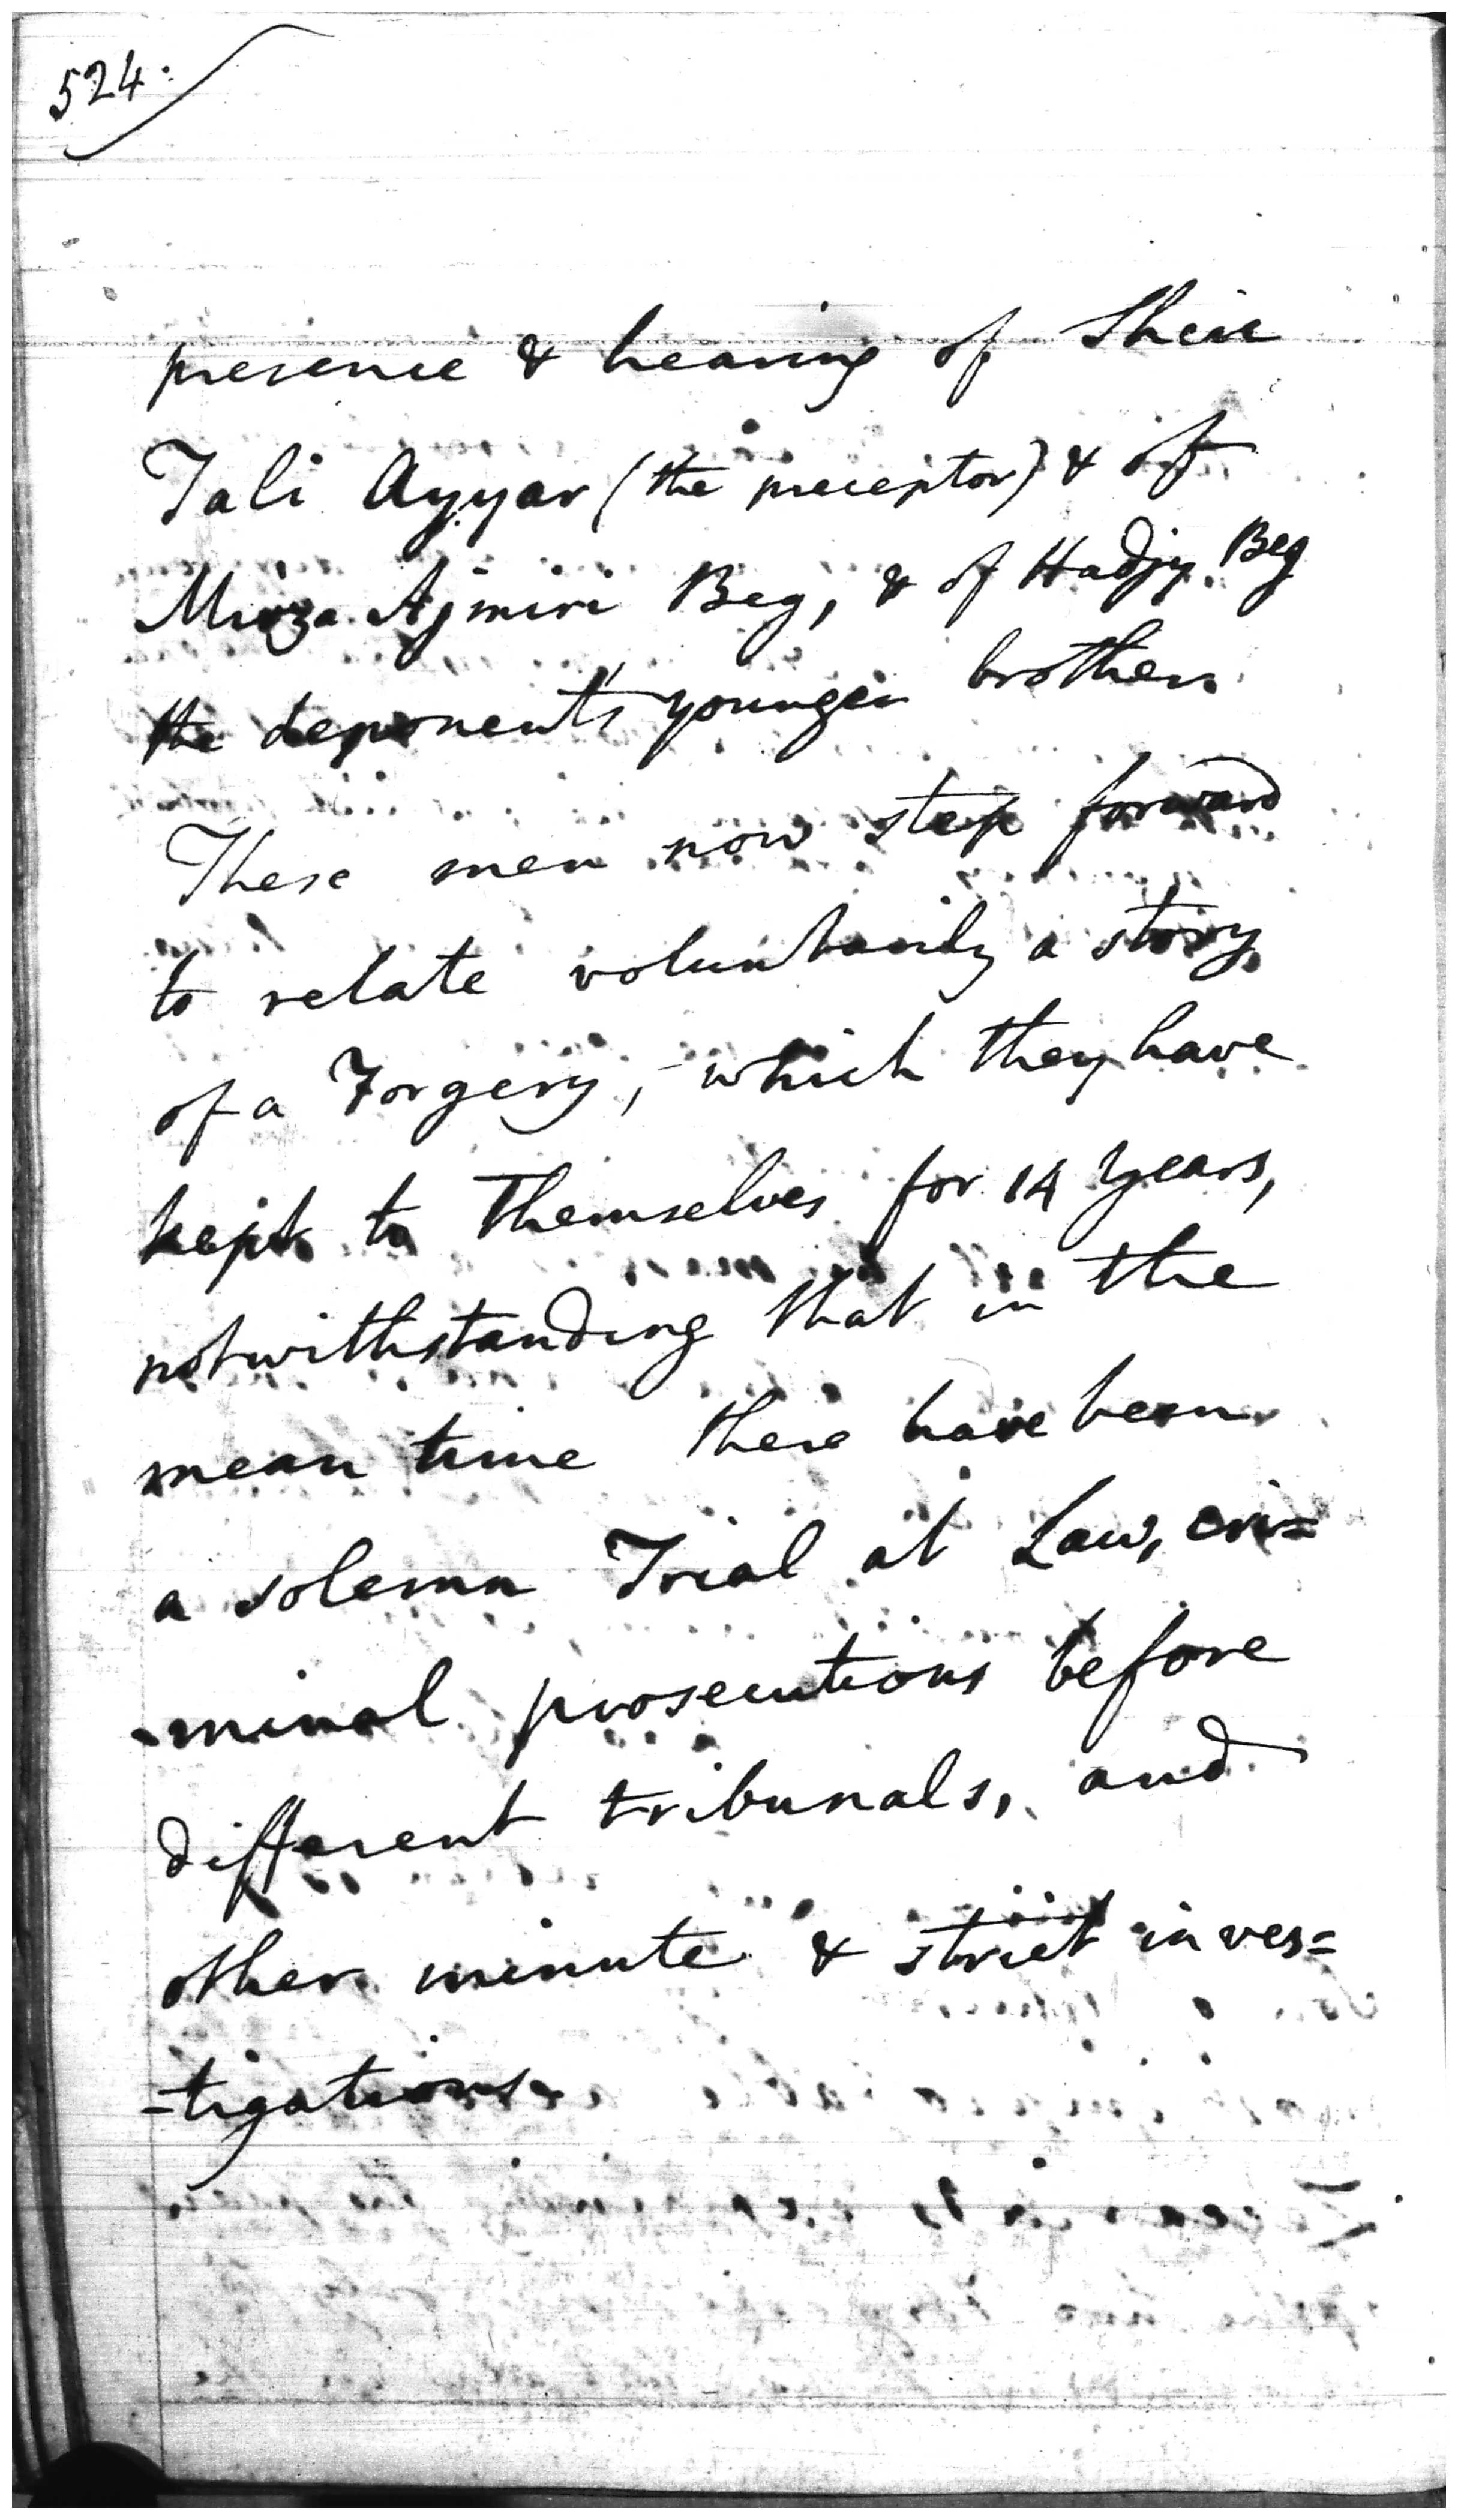 524.
presence & hearing of Shere
Tali Ayyar (the preceptor) & of
Mirza Ajmiri Beg, & of Hadjy Beg
the deponent's younger brother.
These men now step forward
to relate voluntarily a story
of a Forgery, - which they have
kept to themselves for 14 years,
notwithstanding that in the
mean time there have been
a solemn Trial at Law, cri=
-minal prosecutions before
different tribunals, and
other minute & strict inves=
=tigations.